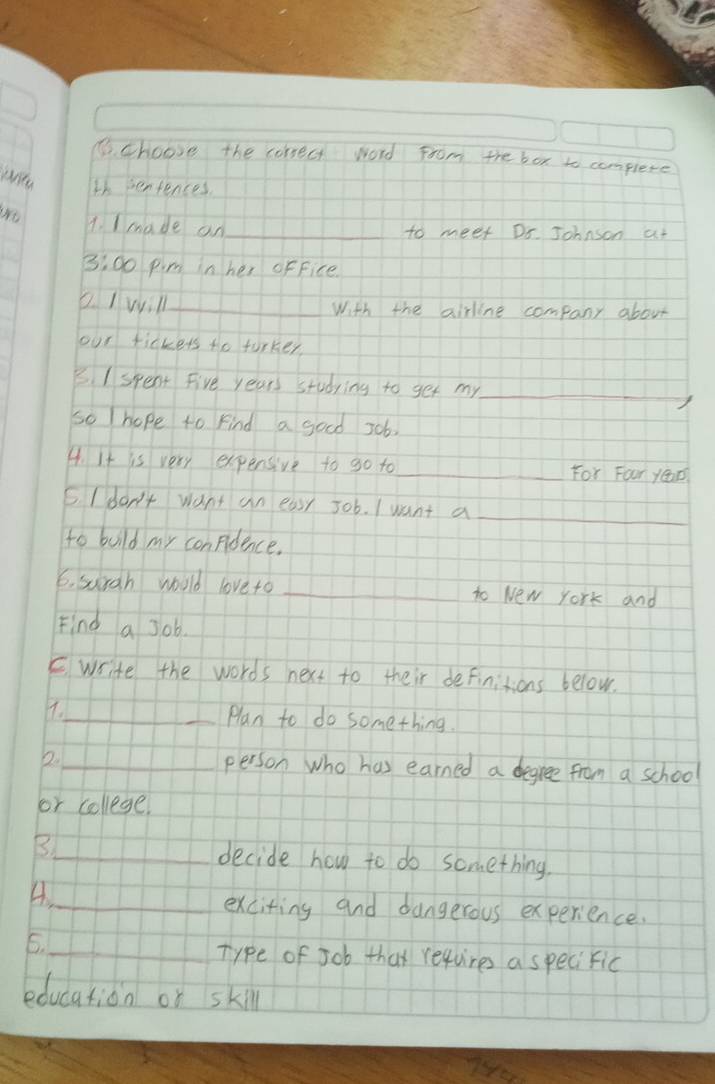 B. choose the correct word From the box to complete
th sentences.
1. I made an__________ to meet Dr. Johnson at
3:00 p.m in her office.
2. I will__________ with the airline company about
our tickets to turkey.
3. I spent Five years studying to get my__________,
so I hope to Find a good Job.
4. It is very expensive to go to__________ For Four years
5. I don't want an easy Job. I want a__________
to build my confidence.
6. Sarah would love to__________ to New York and
Find a Job.
C. Write the words next to their definitions below.
1.__________ Plan to do something.
2.__________ person who has earned a degree from a school
or college.
3.__________ decide how to do something.
4.__________ exciting and dangerous experience.
5.__________ Type of Job that requires a specific
education or skill